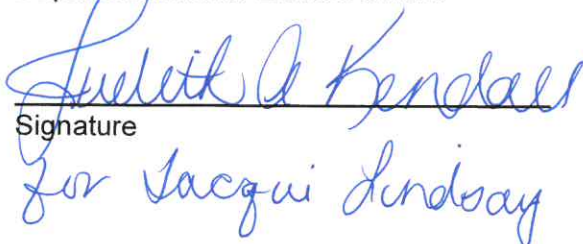 Judith A Kendall
Signature
for Jacqui Lindsay